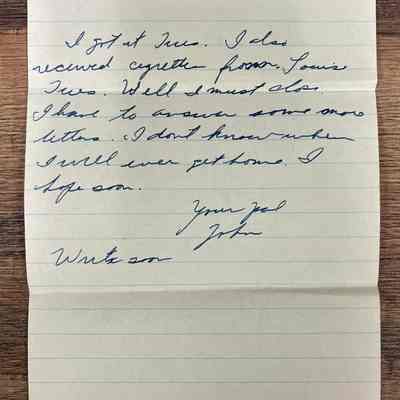 I got it Tues. I also
received cigretts from Louise
Tues. Well I must close.
I have to answer some more
letters. I don't know when
I will ever get home. I
hope soon.
Your pal
John
Write soon